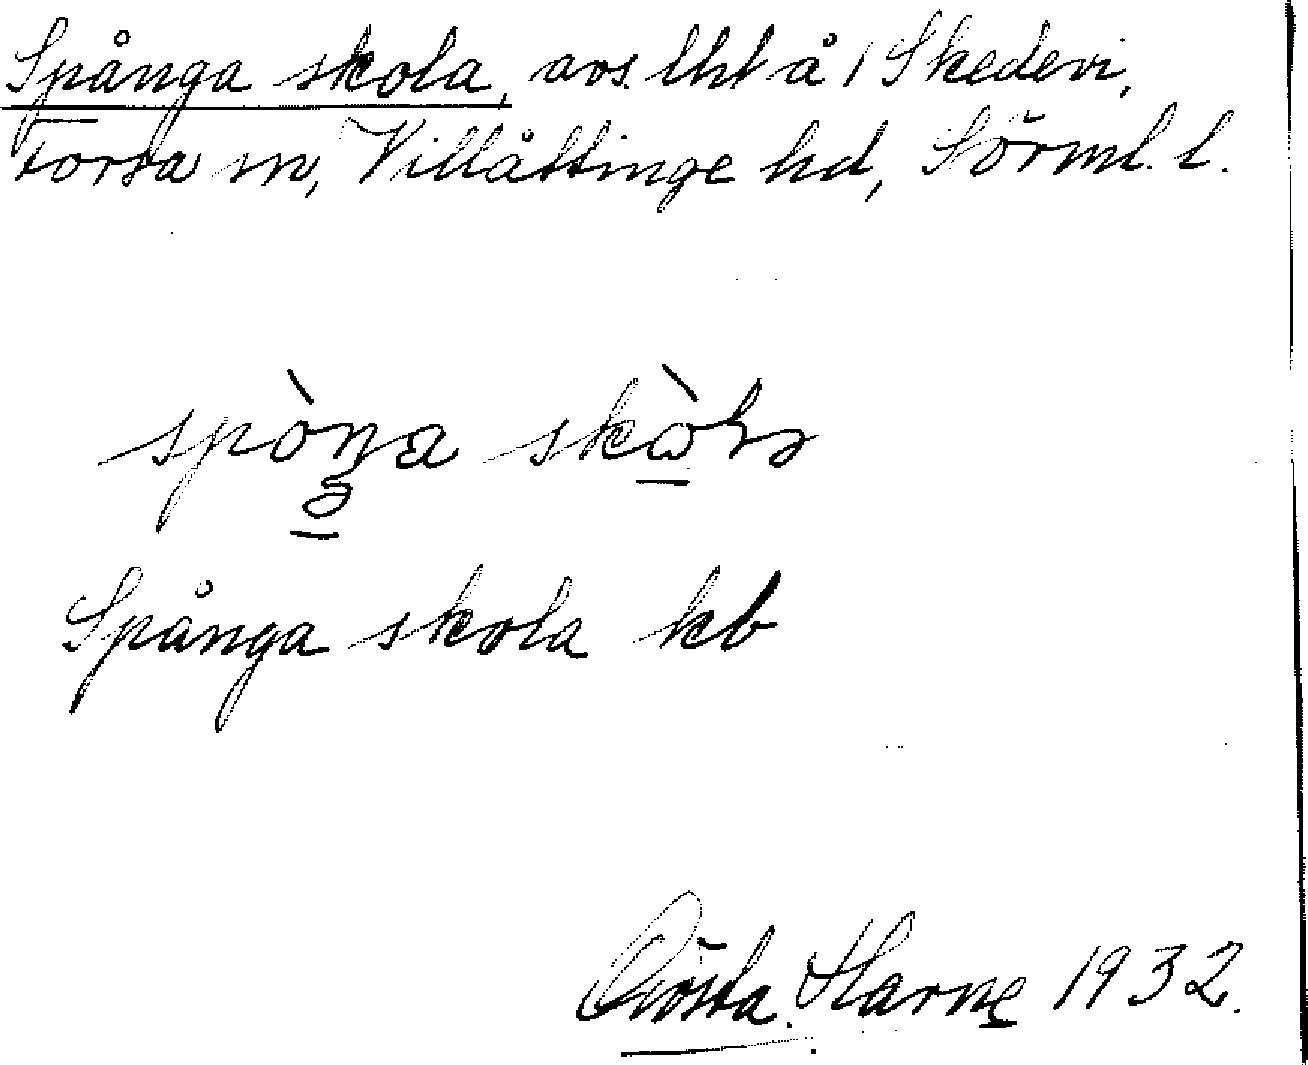 Spånga skola, avs. lht å 1 Skedevi,
Forssa sn, Villåttinge hd, Sörml. l.
spòŋa skòla
Spånga skola kb
Gösta Harne 1932.